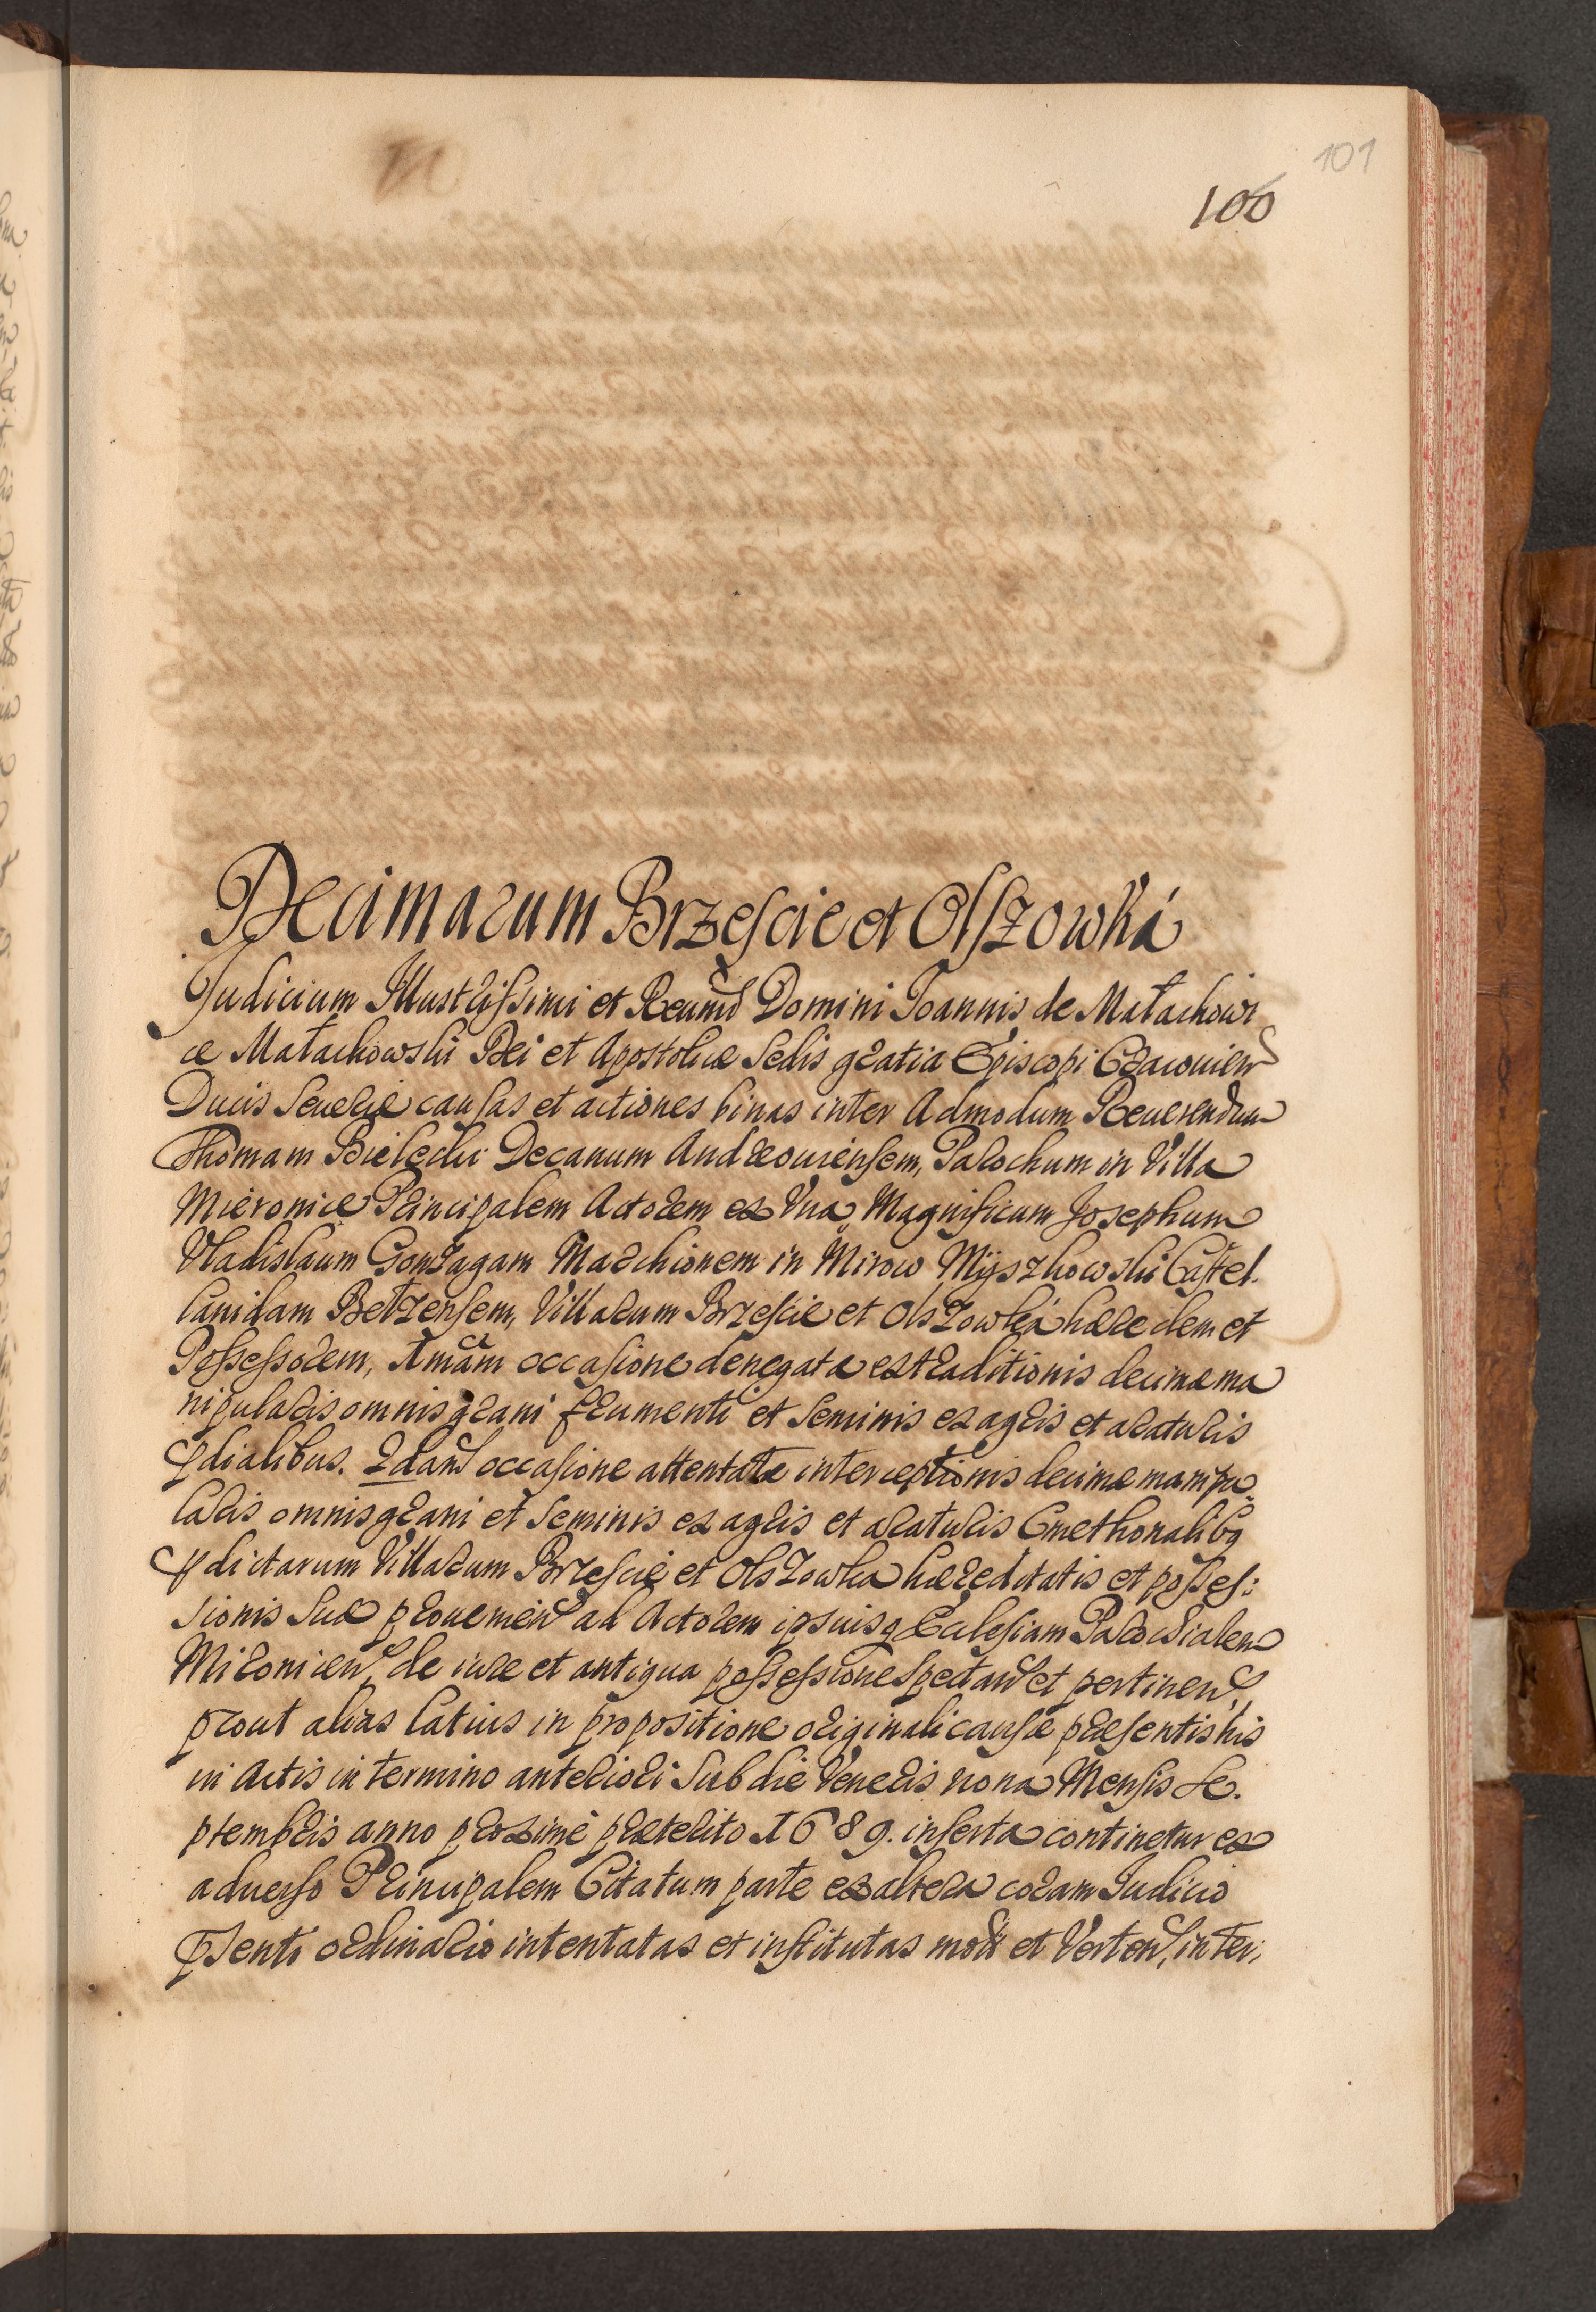 101
100
Decimarum Brzescie et Olszowka
Judicium Illustrissimi et Reumi Domini Joannis de Małachowi
ce Małachowski Dei et Apostolicæ Sedis gratia Episcopi Cracouien
Ducis Seueriæ causas et actiones binas inter Admodum Reuerendum
Thomam Bielecki Decanum Andreouiensem, Parochum in Villa
Mieronice Principalem Actorem ex Vna, Magnificum Josephum
Vladislaum Gonzagam Marchionem in Mirow Myszkowski Castel.
lanidam Bełzensem, Villarum Brzescie et Olszowka hæredem et
Possessorem, 1mam occasione denegatæ extraditionis decimæ ma
nipularis omnis grani frumenti et Seminis ex agris et araturis
pdialibus. 2dam occasione attentatæ interceptionis decimæ manipu
laris omnis grani et Seminis ex agris et araturis Cmethonalibq
pdictarum Villarum Brzescie et Olszowka hæreditatis et posses:
sionis Suæ prouenien ad Actorem ipsuisq Ecclesiam Parochialem
Mironien, de iure et antiqua possessione Spectan et pertinen,
prout alias latius in propositione originali causæ præsentis his
in Actis in termino anteriori Sub die Veneris nona Mensis Se.
ptembris anno proxime præterito 1689. inserta continetur ex
aduerso Principalem Citatum parte ex altera coram Iudicio
psenti ordinario intentatas et institutas mott et Verten, inter;